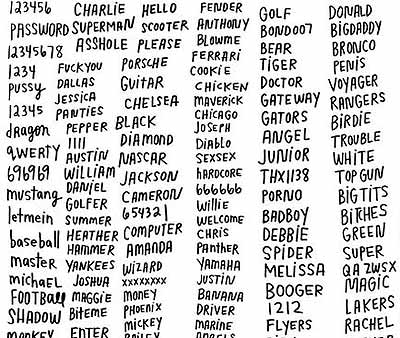 123456
PASSWORD
12345678
1234
pussy
12345
dragon
qWERTY
696969
mustang
letmein
baseball
master
michael
FOOTBall
SHADOW
MONKEY
CHARLIE
SUPERMAN
ASSHOLE
FUCKYOU
DALLAS
JESSICA
PANTIES
PEPPER
1111
AUSTIN
WILLIAM
DANIEL
GOLFER
SUMMER
HEATHER
HAMMER
YANKEES
JOSHUA
MAGGIE
BITEME
ENTER
HELLO
SCOOTER
PLEASE
PORSCHE
GUITAR
CHELSEA
BLACK
DIAMOND
NASCAR
JACKSON
CAMERON
654321
COMPUTER
AMANDA
WIZARD
xxxxxxxx
MONEY
PHOENIX
MICKEY
FENDER
ANTHONY
BLOWME
FERRARI
COOKIE
CHICKEN
MAVERICK
CHICAGO
JOSEPH
DIABLO
SEXSEX
HARDCORE
666666
Willie
WELCOME
CHRIS
Panther
YAMAHA
JUSTIN
BANANA
DRIVER
MARINE
GOLF
BOND007
BEAR
TIGER
DOCTOR
GATEWAY
GATORS
ANGEL
JUNIOR
THX1138
PORNO
BADBOY
DEBBIE
SPIDER
MELISSA
BOOGER
1212
FLYERS
DONALD
BIGDADDY
BRONCO
PENIS
VOYAGER
RANGERS
BIRDIE
TROUBLE
WHITE
TOPGUN
BIGTITS
BITCHES
GREEN
SUPER
QAZWSX
MAGIC
LAKERS
RACHEL